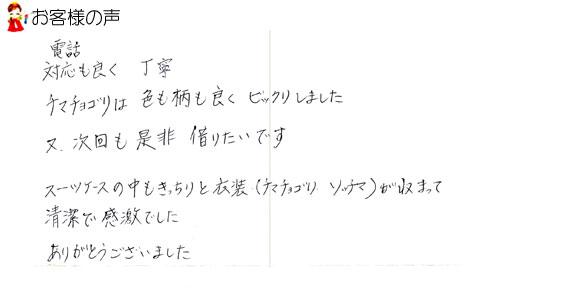 お客様の声
電話
対応も良く 丁寧
チマチョゴリは 色も柄も良く ビックリしました
又、次回も是非 借りたいです
スーツケースの中もきっちりと衣装(チマチョゴリ ソッチマ)が収まって
清潔で感激でした
ありがとうございました